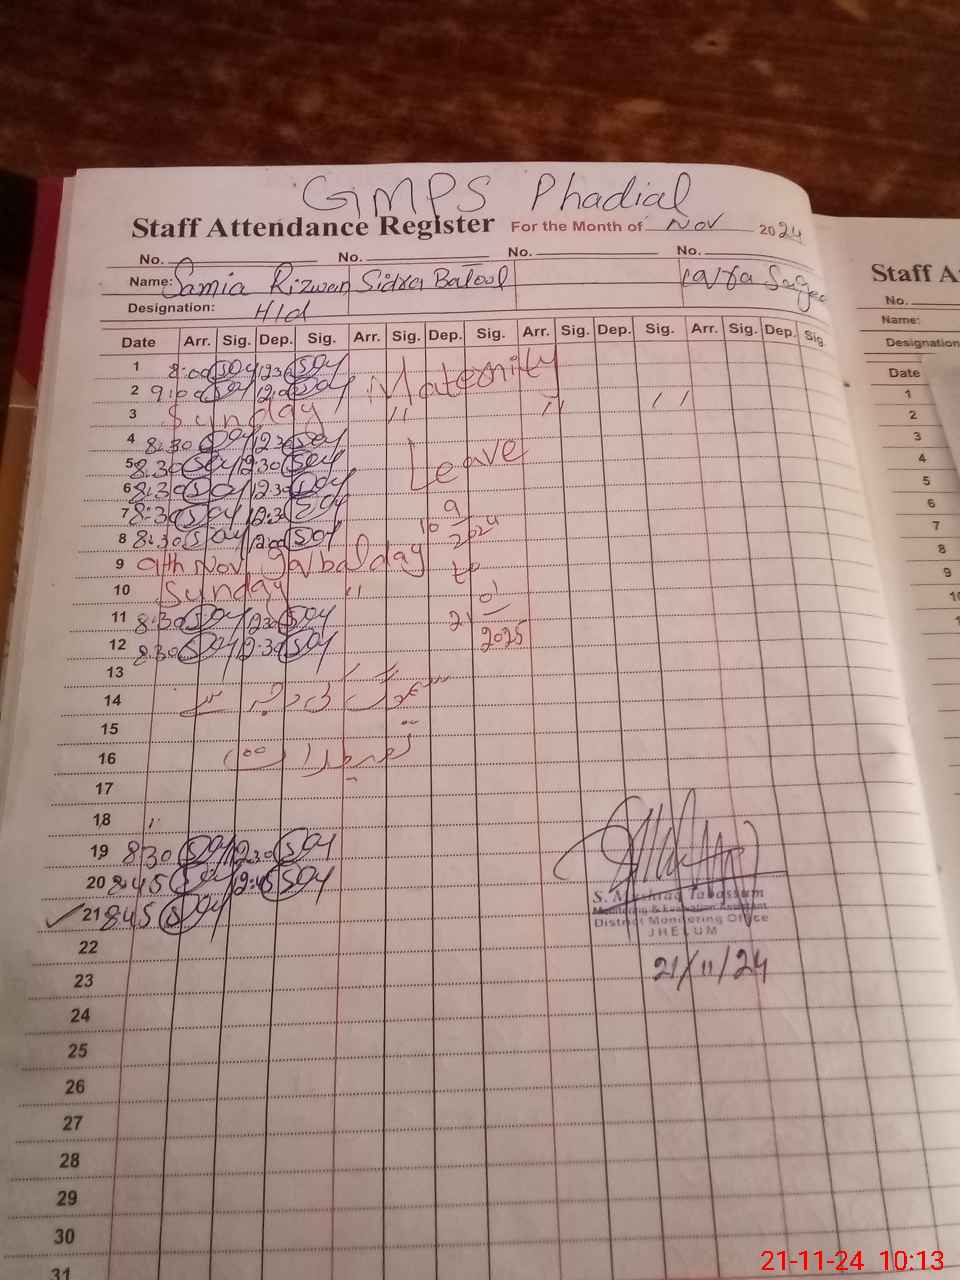 GMPS Phadial
Staff Attendance Register For the Month of Nov 2024
No. No. No. No.
Name: Samia Rizwan Sidra Batool
Designation: H/d
Date Arr. Sig. Dep. Sig. Arr. Sig. Dep. Sig. Arr. Sig. Dep. Sig. Arr. Sig. Dep. Sig.
1 8:00 12:30 Maternity
2 9:00 12:00
3 Sunday " " "
4 8:30 12:30 Leave
5 8:30 12:30
6 8:30 12:30
7 8:30 12:30 10 9
8 8:30 12:00 2024
9 9th Nov. Iqbal day to
10 Sunday " 01
11 8:30 12:30 21
12 8:30 12:30 2025
13
14
15
16 تعطیلات
17
18
19 8:30 12:30
20 8:45 12:45
21 8:45
S. Mushtaq Tabassum
Monitoring & Evaluation Assistant
District Monitoring Office
JHELUM
21/11/24
22
23
24
25
26
27
28
29
30
31
Staff A
No.
Name:
Designation
Date
1
2
3
4
5
6
7
8
9
21-11-24 10:13